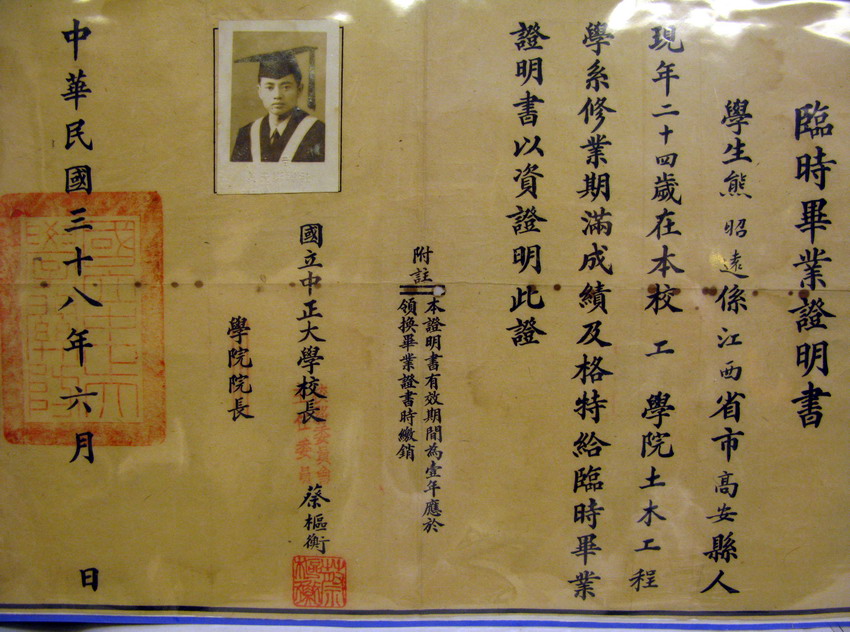 臨時畢業證明書
學生熊昭遠係江西省市高安縣人
現年二十四歲在本校工學院土木工程
學系修業期滿成績及格特給臨時畢業
證明書以資證明此證
附註
本證明書有效期間為壹年應於
領換畢業證書時繳銷
國立中正大學校長
蔡樞衡
學院院長
中華民國三十八年六月
日